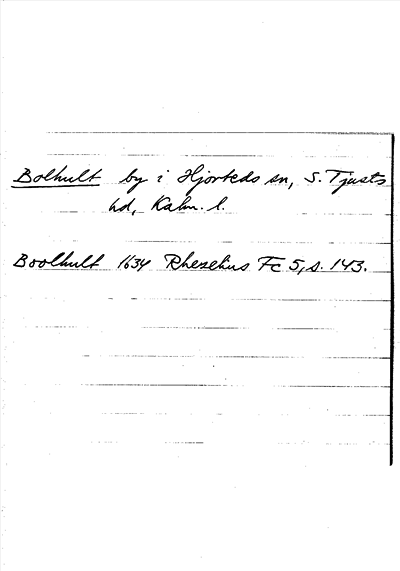 Bolhult by i Hjorteds sn, S. Tjusts
hd, Kalm. l.
Boolhult 1634 Rhezelius Fc 5, s. 143.